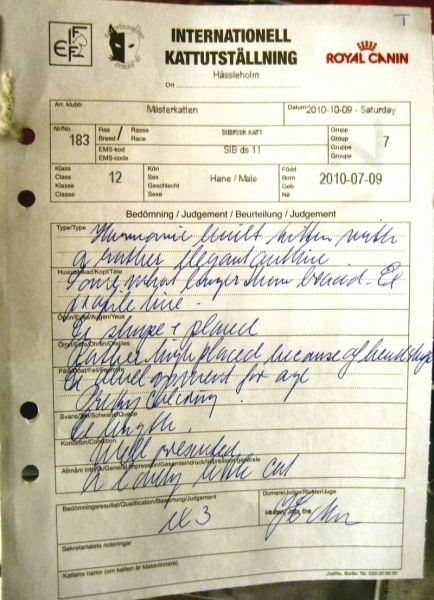 T
INTERNATIONELL
KATTUTSTÄLLNING
Hässleholm
Ort
FIFe
ROYAL CANIN
Arr. klubb
Mästerkatten
Datum 2010-10-09 - Saturday
Nr/No 183
Ras / Rasse
Breed / Race
SIBIRISK KATT
EMS-kod
EMS-code
SIB ds 11
Grupp
Group
Gruppe
Groupe
7
Klass
Class
Klasse
Classe
12
Kön
Sex
Geschlecht
Sexe
Hane / Male
Född
Born
Geb.
Né
2010-07-09
Bedömning / Judgement / Beurteilung / Judgement
Type/Type
Harmonic built kitten with
a rather elegant outline
Huvud/Head/Kopf/Tête
Somewhat longer than broad - Ex
profile line.
Ögon/Eyes/Augen/Yeux
Ex shape + placed
Öron/Ears/Ohren/Oreilles
Rather high placed because of head shape
Päls/Coat/Fell/Fourrure
Ex development for age
colouring.
Svans/Tail/Schwanz/Queue
Ex length.
Kondition/Condition
Well presented
Allmänt intryck/General impression/Gesamteindruck/Impression générale
A little cat
Bedömningsresultat/Qualification/Bewertung/Judgement
ex 3
Domare/Judge/Richter/Juge
Sekretariatets noteringar
Kattens namn (om katten är klassvinnare)